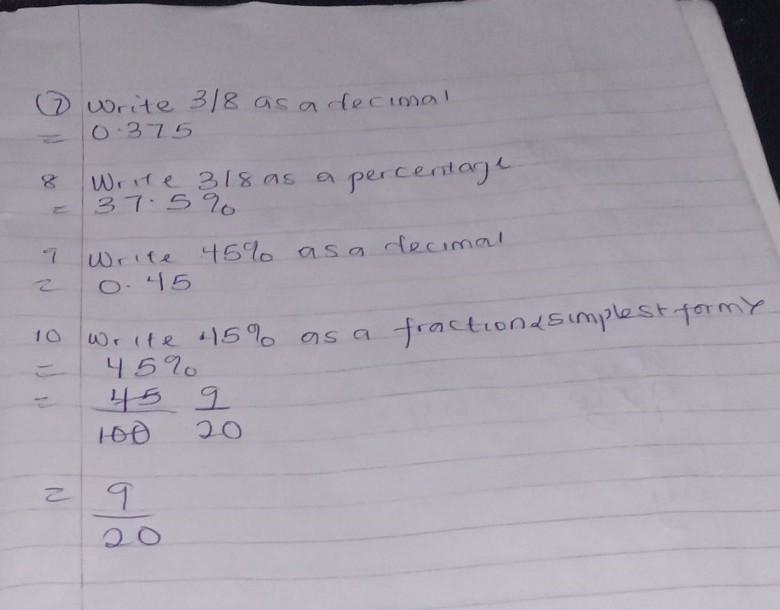 7 Write 3/8 as a decimal
= 0.375
8 Write 3/8 as a percentage
= 37.5%
9 Write 45% as a decimal
= 0.45
10 Write 45% as a fraction (simplest form)
= 45%
= 45/100 9/20
= 9/20